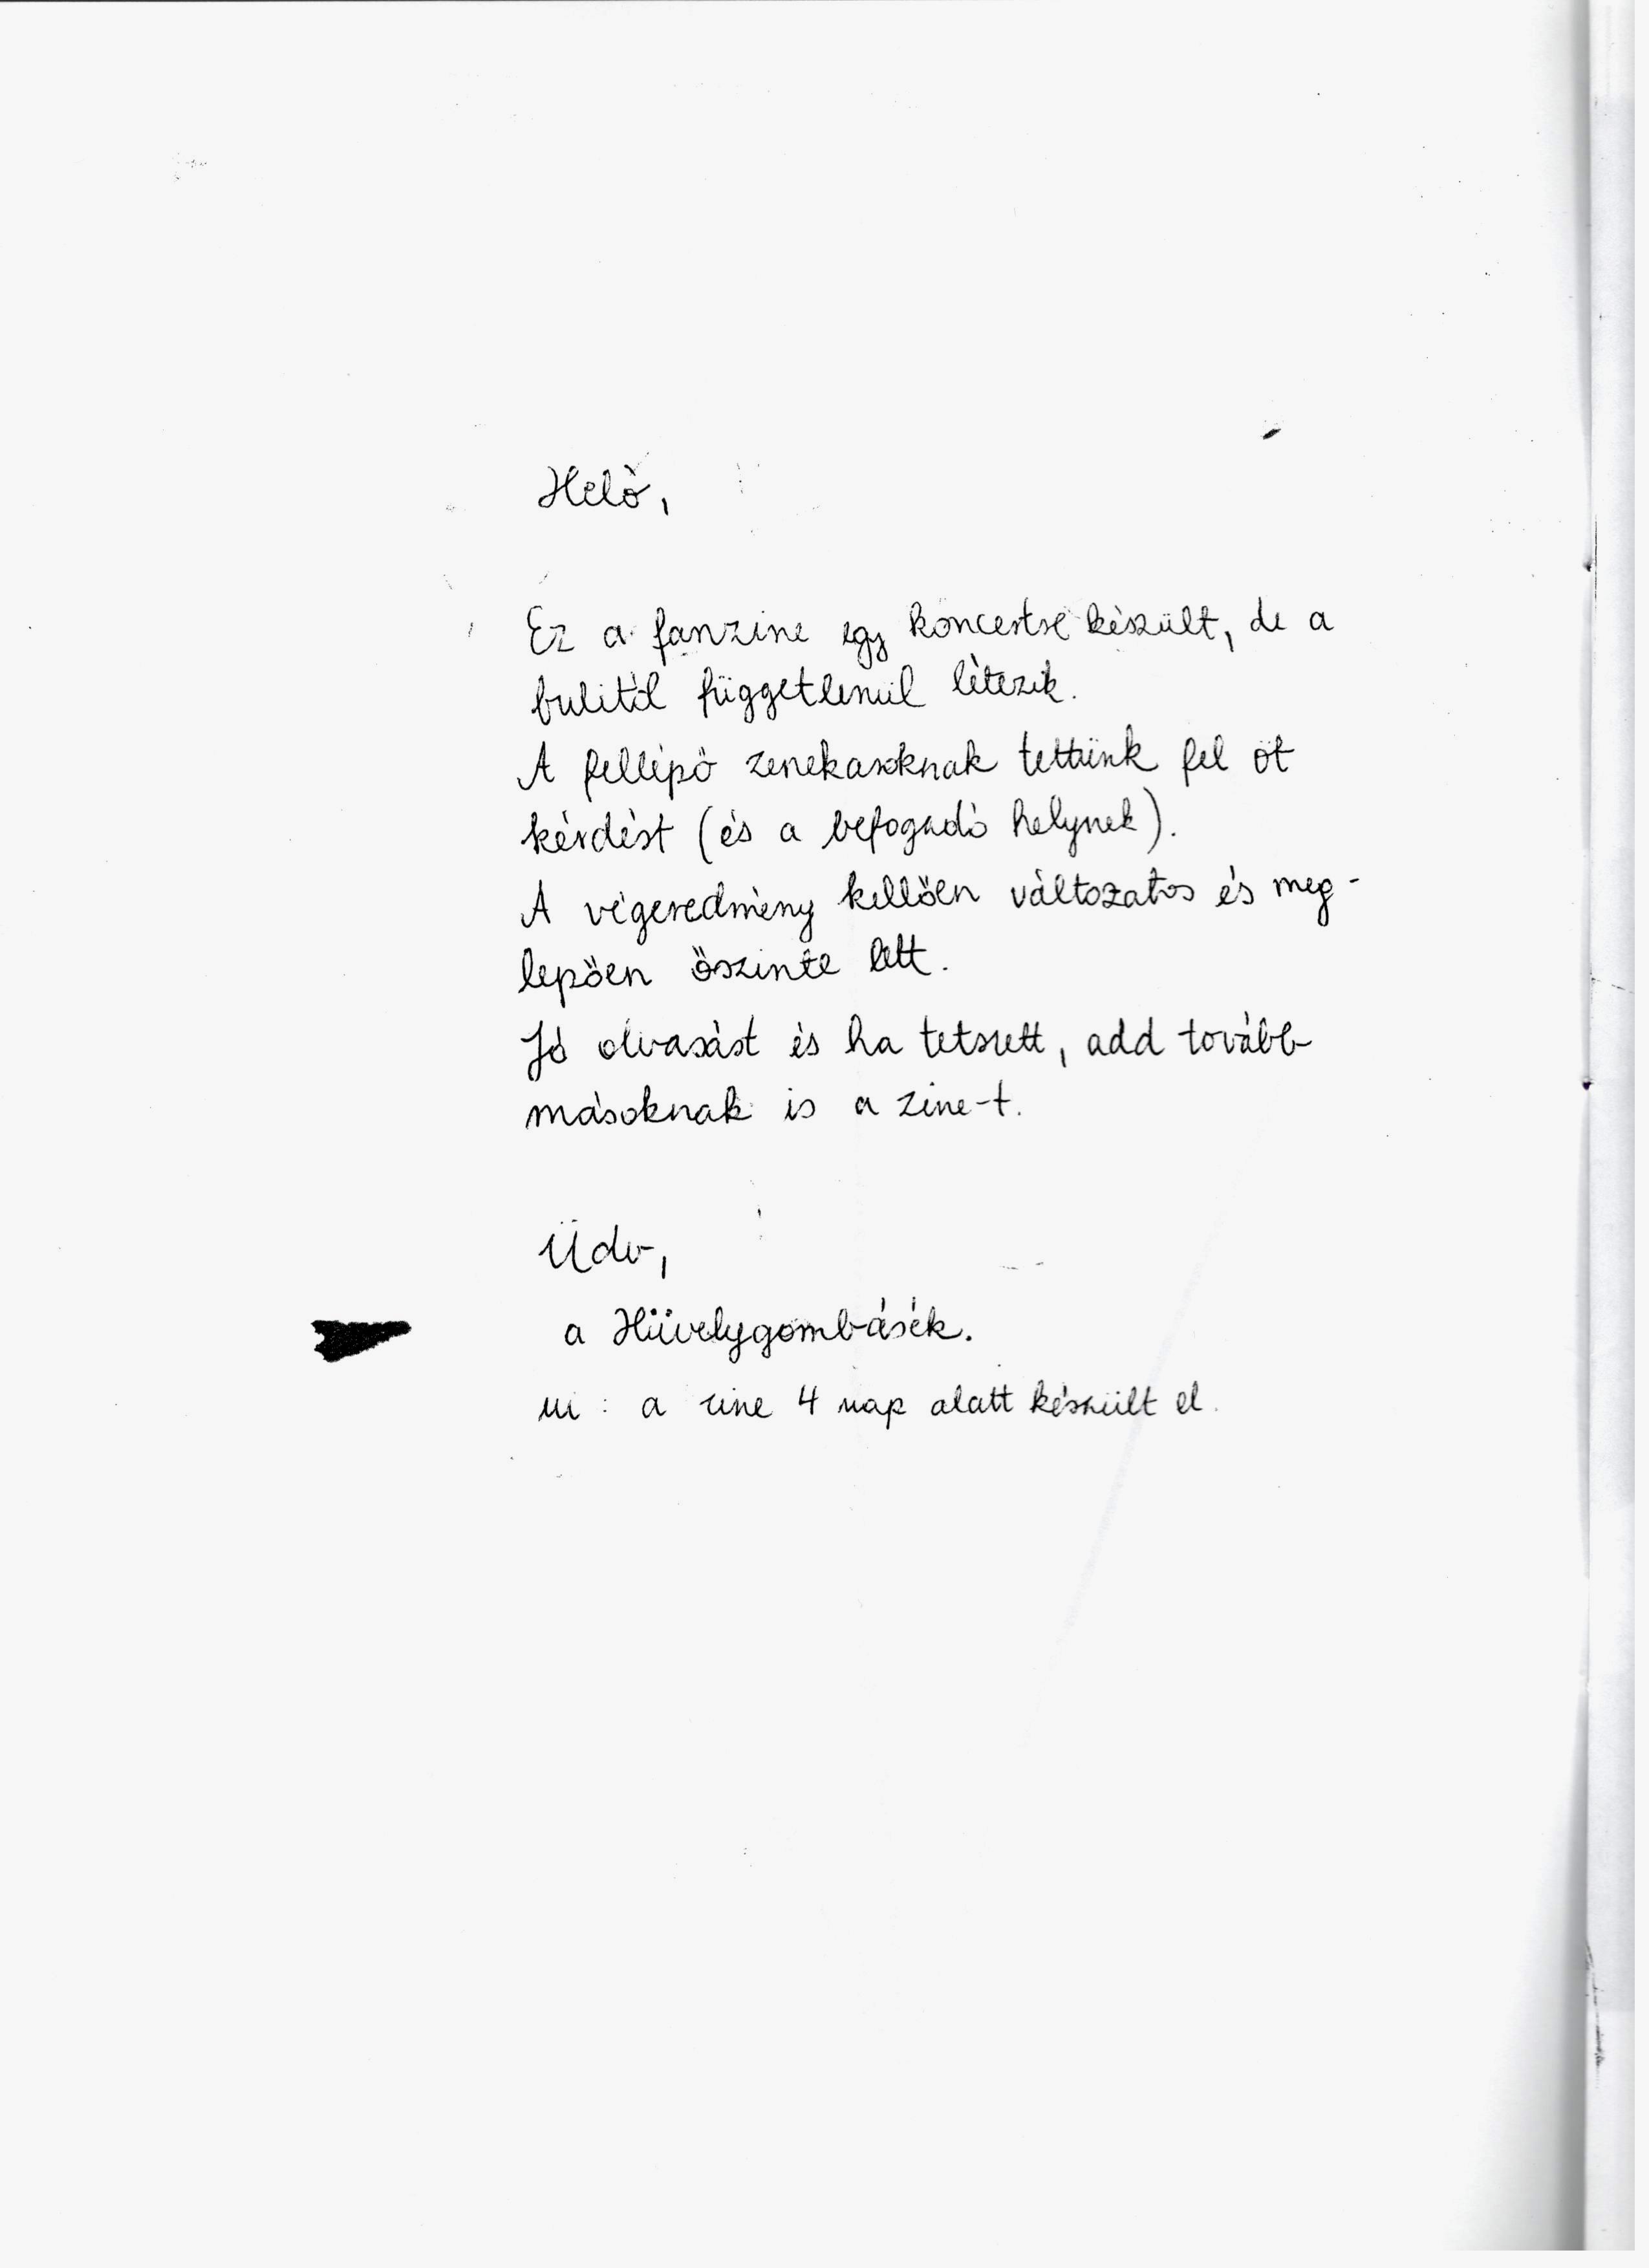 Heló,
Ez a fanzine egy koncertre készült, de a
bulitól függetlenül létezik.
A fellépő zenekaroknak tettünk fel öt
kérdést (és a befogadó helynek).
A végeredmény kellően változatos és meg-
lepően őszinte lett.
Jó olvasást és ha tetszett, add tovább
másoknak is a zine-t.
Üdv,
a Hüvelygombásék.
ui: a zine 4 nap alatt készült el.